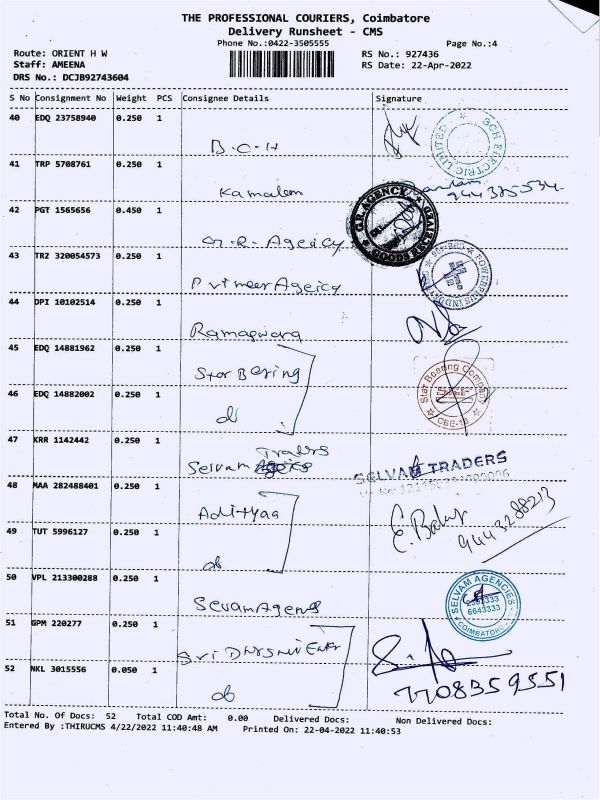 THE PROFESSIONAL COURIERS, Coimbatore
Delivery Runsheet - CMS
Phone No.:0422-3505555
Page No.:4
Route: ORIENT H W
RS No.: 927436
Staff: AMEENA
RS Date: 22-Apr-2022
DRS No.: DCJB92743604
S No Consignment No Weight PCS Consignee Details Signature
40 EDQ 23758940 0.250 1
B.C.H
BCH ELECTRIC LIMITED
41 TRP 5708761 0.250 1
Kamalam
42 PGT 1565656 0.450 1
G.R. AGENCY
GOODS RECEIVED
G.R. Agency
43 TR2 320054573 0.250 1
44 DPI 10102514 0.250 1
45 EDQ 14881962 0.250 1
Star Bering
Star Bearing Company
CBE-18
46 EDQ 14882002 0.250 1
do
47 KRR 1142442 0.250 1
Traders
Selvam
SELVAM TRADERS
48 MAA 282488401 0.250 1
Adithyaa
9443288213
49 TUT 5996127 0.250 1
do
50 VPL 213300288 0.250 1
SELVAM AGENCIES
6643333
COIMBATORE
51 GPM 220277 0.250 1
52 NKL 3015556 0.050 1
do
7708359551
Total No. Of Docs: 52 Total COD Amt: 0.00 Delivered Docs: Non Delivered Docs:
Entered By :THIRUCMS 4/22/2022 11:40:48 AM Printed On: 22-04-2022 11:40:53